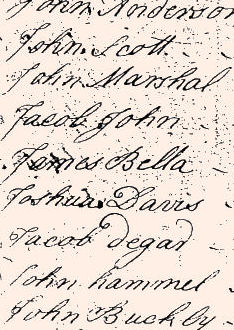 John Anderson
John Scott
John Marshal
Jacob John
James Bella
Joshua Davis
Jacob degad
John hammel
John Buckby